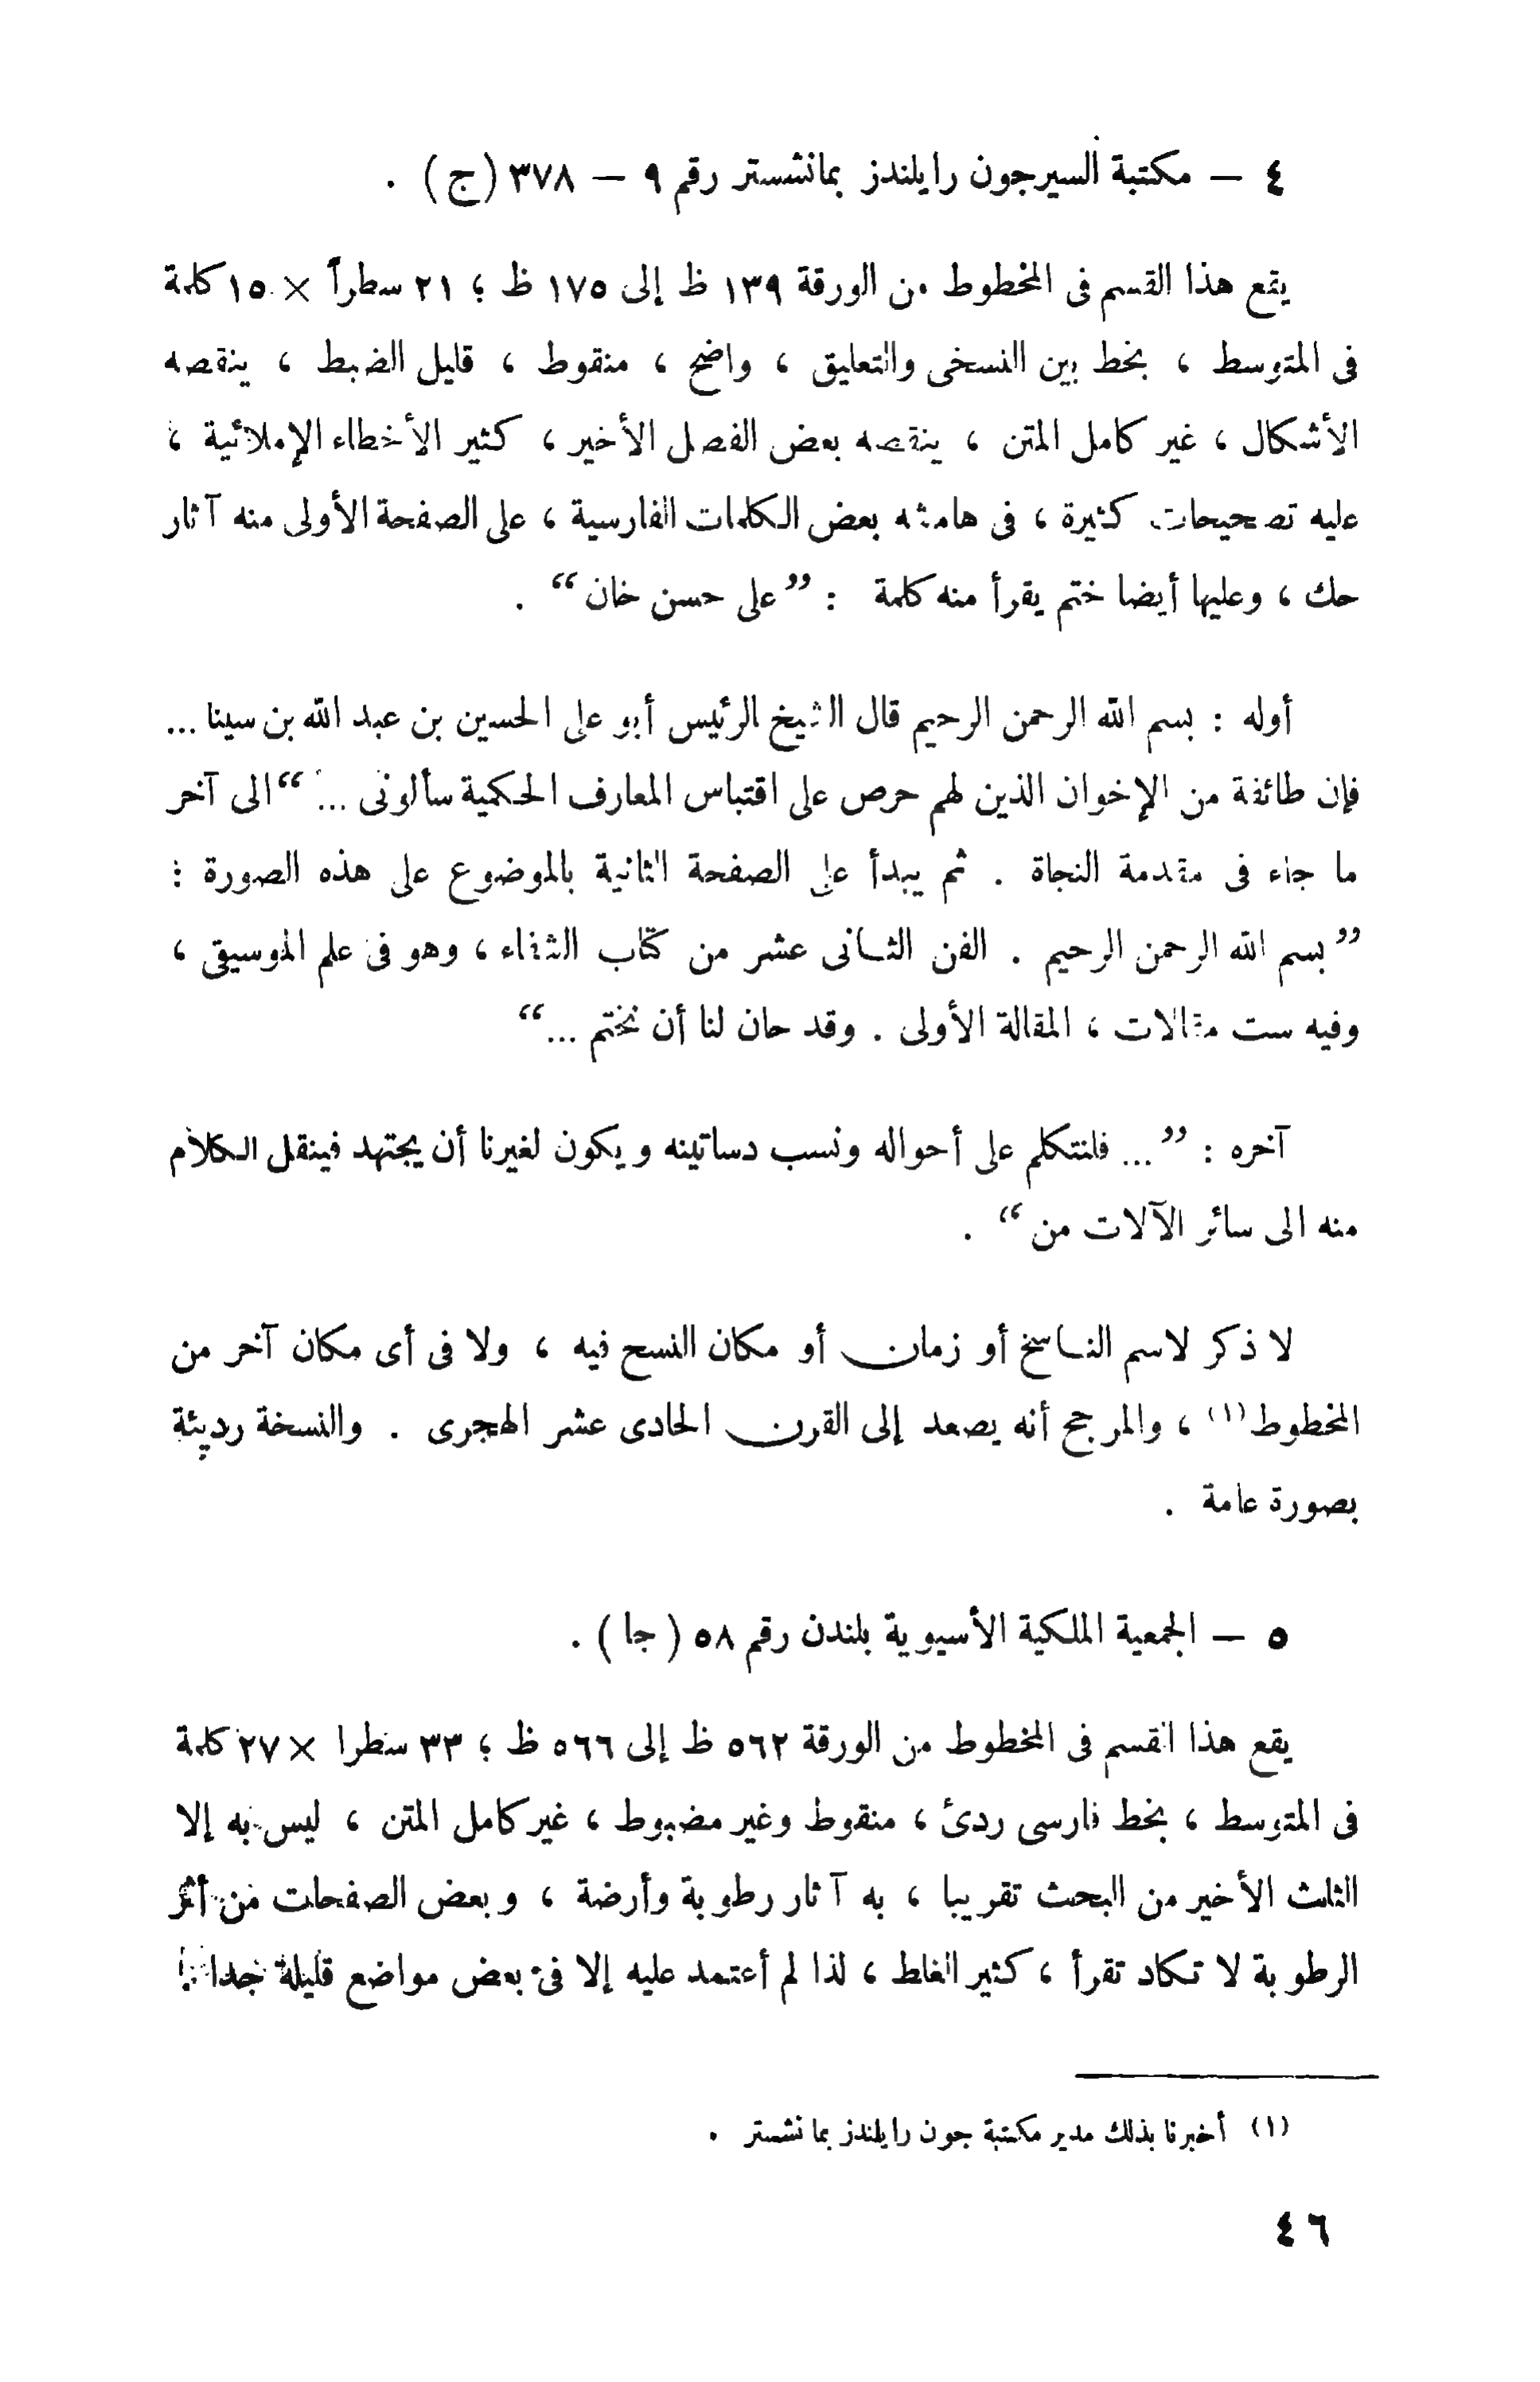 ٤ – مكتبة السيرجون رايلندز بمانشستر رقم ٩ – ٣٧٨ (ج) .
يقع هذا القسم فى المخطوط من الورقة ١٣٩ ظ إلى ١٧٥ ظ ؛ ٢١ سطراً × ١٥ كلمة
فى المتوسط ، بخط بين النسخى والتعليق ، واضح ، منقوط ، قليل الضبط ، ينقصه
الأشكال ، غير كامل المتن ، ينقصه بعض الفصل الأخير ، كثير الأخطاء الإملائية ،
عليه تصحيحات كثيرة ، فى هامشه بعض الكلمات الفارسية ، على الصفحة الأولى منه آثار
حك ، وعليها أيضا ختم يقرأ منه كلمة : ”على حسن خان“ .
أوله : بسم الله الرحمن الرحيم قال الشيخ الرئيس أبو على الحسين بن عبد الله بن سينا ...
فإن طائفة من الإخوان الذين لهم حرص على اقتباس المعارف الحكمية سألونى ...“ الى آخر
ما جاء فى مقدمة النجاة . ثم يبدأ على الصفحة الثانية بالموضوع على هذه الصورة :
”بسم الله الرحمن الرحيم . الفن الثانى عشر من كتاب الشفاء ، وهو فى علم الموسيقى ،
وفيه ست مقالات ، المقالة الأولى . وقد حان لنا أن نختم ...“
آخره : ”... فلنتكلم على أحواله ونسب دساتينه ويكون لغيرنا أن يجتهد فينقل الكلام
منه الى سائر الآلات من“ .
لا ذكر لاسم الناسخ أو زمان أو مكان النسح فيه ، ولا فى أى مكان آخر من
المخطوط (١) ، والمرجح أنه يصعد إلى القرن الحادى عشر الهجرى . والنسخة رديئة
بصورة عامة .
٥ – الجمعية الملكية الأسيوية بلندن رقم ٥٨ (جا) .
يقع هذا القسم فى المخطوط من الورقة ٥٦٢ ظ إلى ٥٦٦ ظ ؛ ٣٣ سطرا × ٢٧ كلمة
فى المتوسط ، بخط فارسى ردئ ، منقوط وغير مضبوط ، غير كامل المتن ، ليس به إلا
الثلث الأخير من البحث تقريبا ، به آثار رطوبة وأرضة ، وبعض الصفحات من أثر
الرطوبة لا تكاد تقرأ ، كثير الغلط ، لذا لم أعتمد عليه إلا فى بعض مواضع قليلة جدا .
(١) أخبرنا بذلك مدير مكتبة جون رايلندز بمانشستر .
٤٦